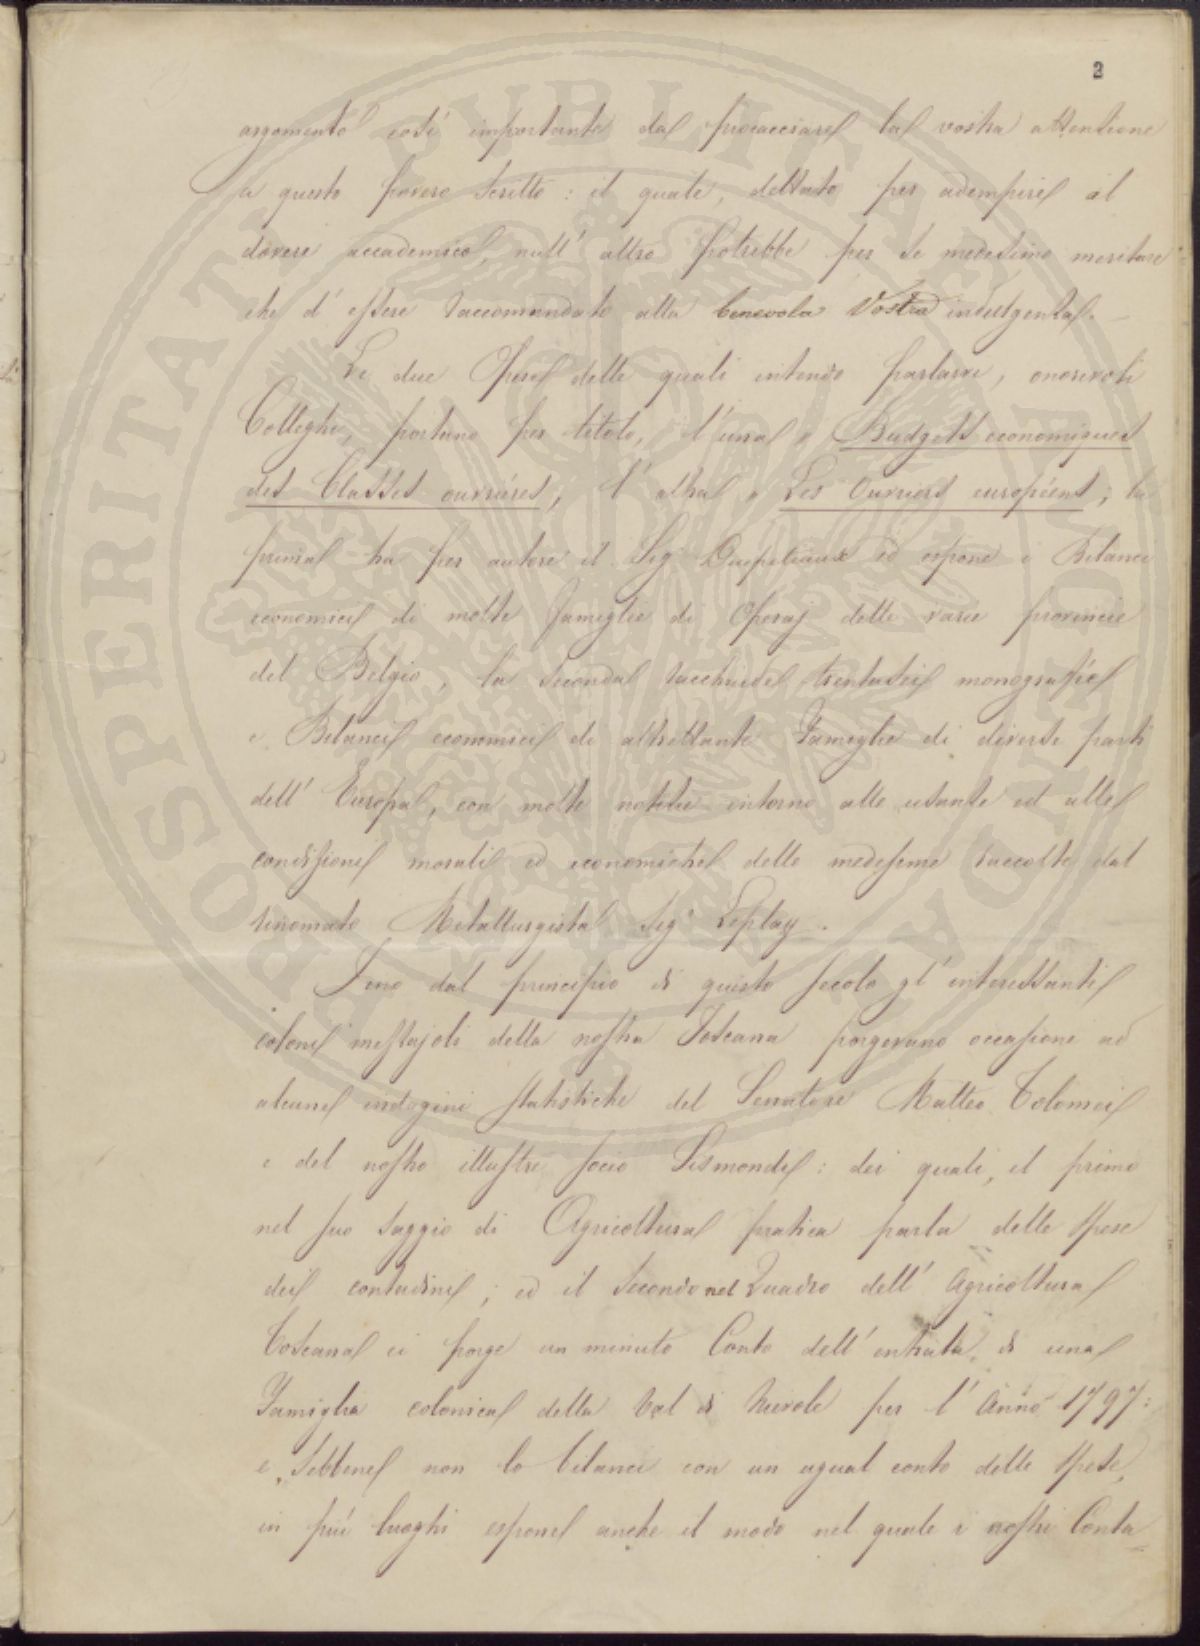 2
argomento così importante da procacciare la vostra attenzione
a questo povero scritto: il quale, dettato per adempire al
dovere accademico, null'altro potrebbe per se medesimo meritare
che d'essere raccomandato alla benevola Vostra indulgenza.
Le due Opere delle quali intendo parlarvi, onorevoli
Colleghi, portano per titolo, l'una „ Budgets economiques
des Classes ouvriéres, l'altra „ Les Ouvriers européens; la
prima ha per autore il Sig.r Ducpetiaux ed espone i Bilanci
economici di molte famiglie di Operaj delle varie provincie
del Belgio, la seconda racchiude trentasei monografie
e Bilanci economici di altrettante Famiglie di diverse parti
dell'Europa, con molte notizie intorno alle usanze ed alle
condizioni morali ed economiche delle medesime raccolte dal
rinomato Metallurgista Sig.r Leplay.
Fino dal principio di questo secolo gl'interessanti
coloni mezzajoli della nostra Toscana porgevano occasione ad
alcune indagini statistiche del Senatore Matteo Tolomei
e del nostro illustre socio Sismondi: dei quali, il primo
nel suo saggio di Agricoltura pratica parla delle spese
dei contadini; ed il secondo nel Quadro dell'Agricoltura
Toscana ci porge un minuto Conto dell'entrata di una
Famiglia colonica della Val di Nievole per l'Anno 1797:
e sebbene non lo bilanci con un ugual conto delle spese,
in più luoghi espone anche il modo nel quale i nostri Conta=
PROSPERITATI PUBLICAE AUGENDAE